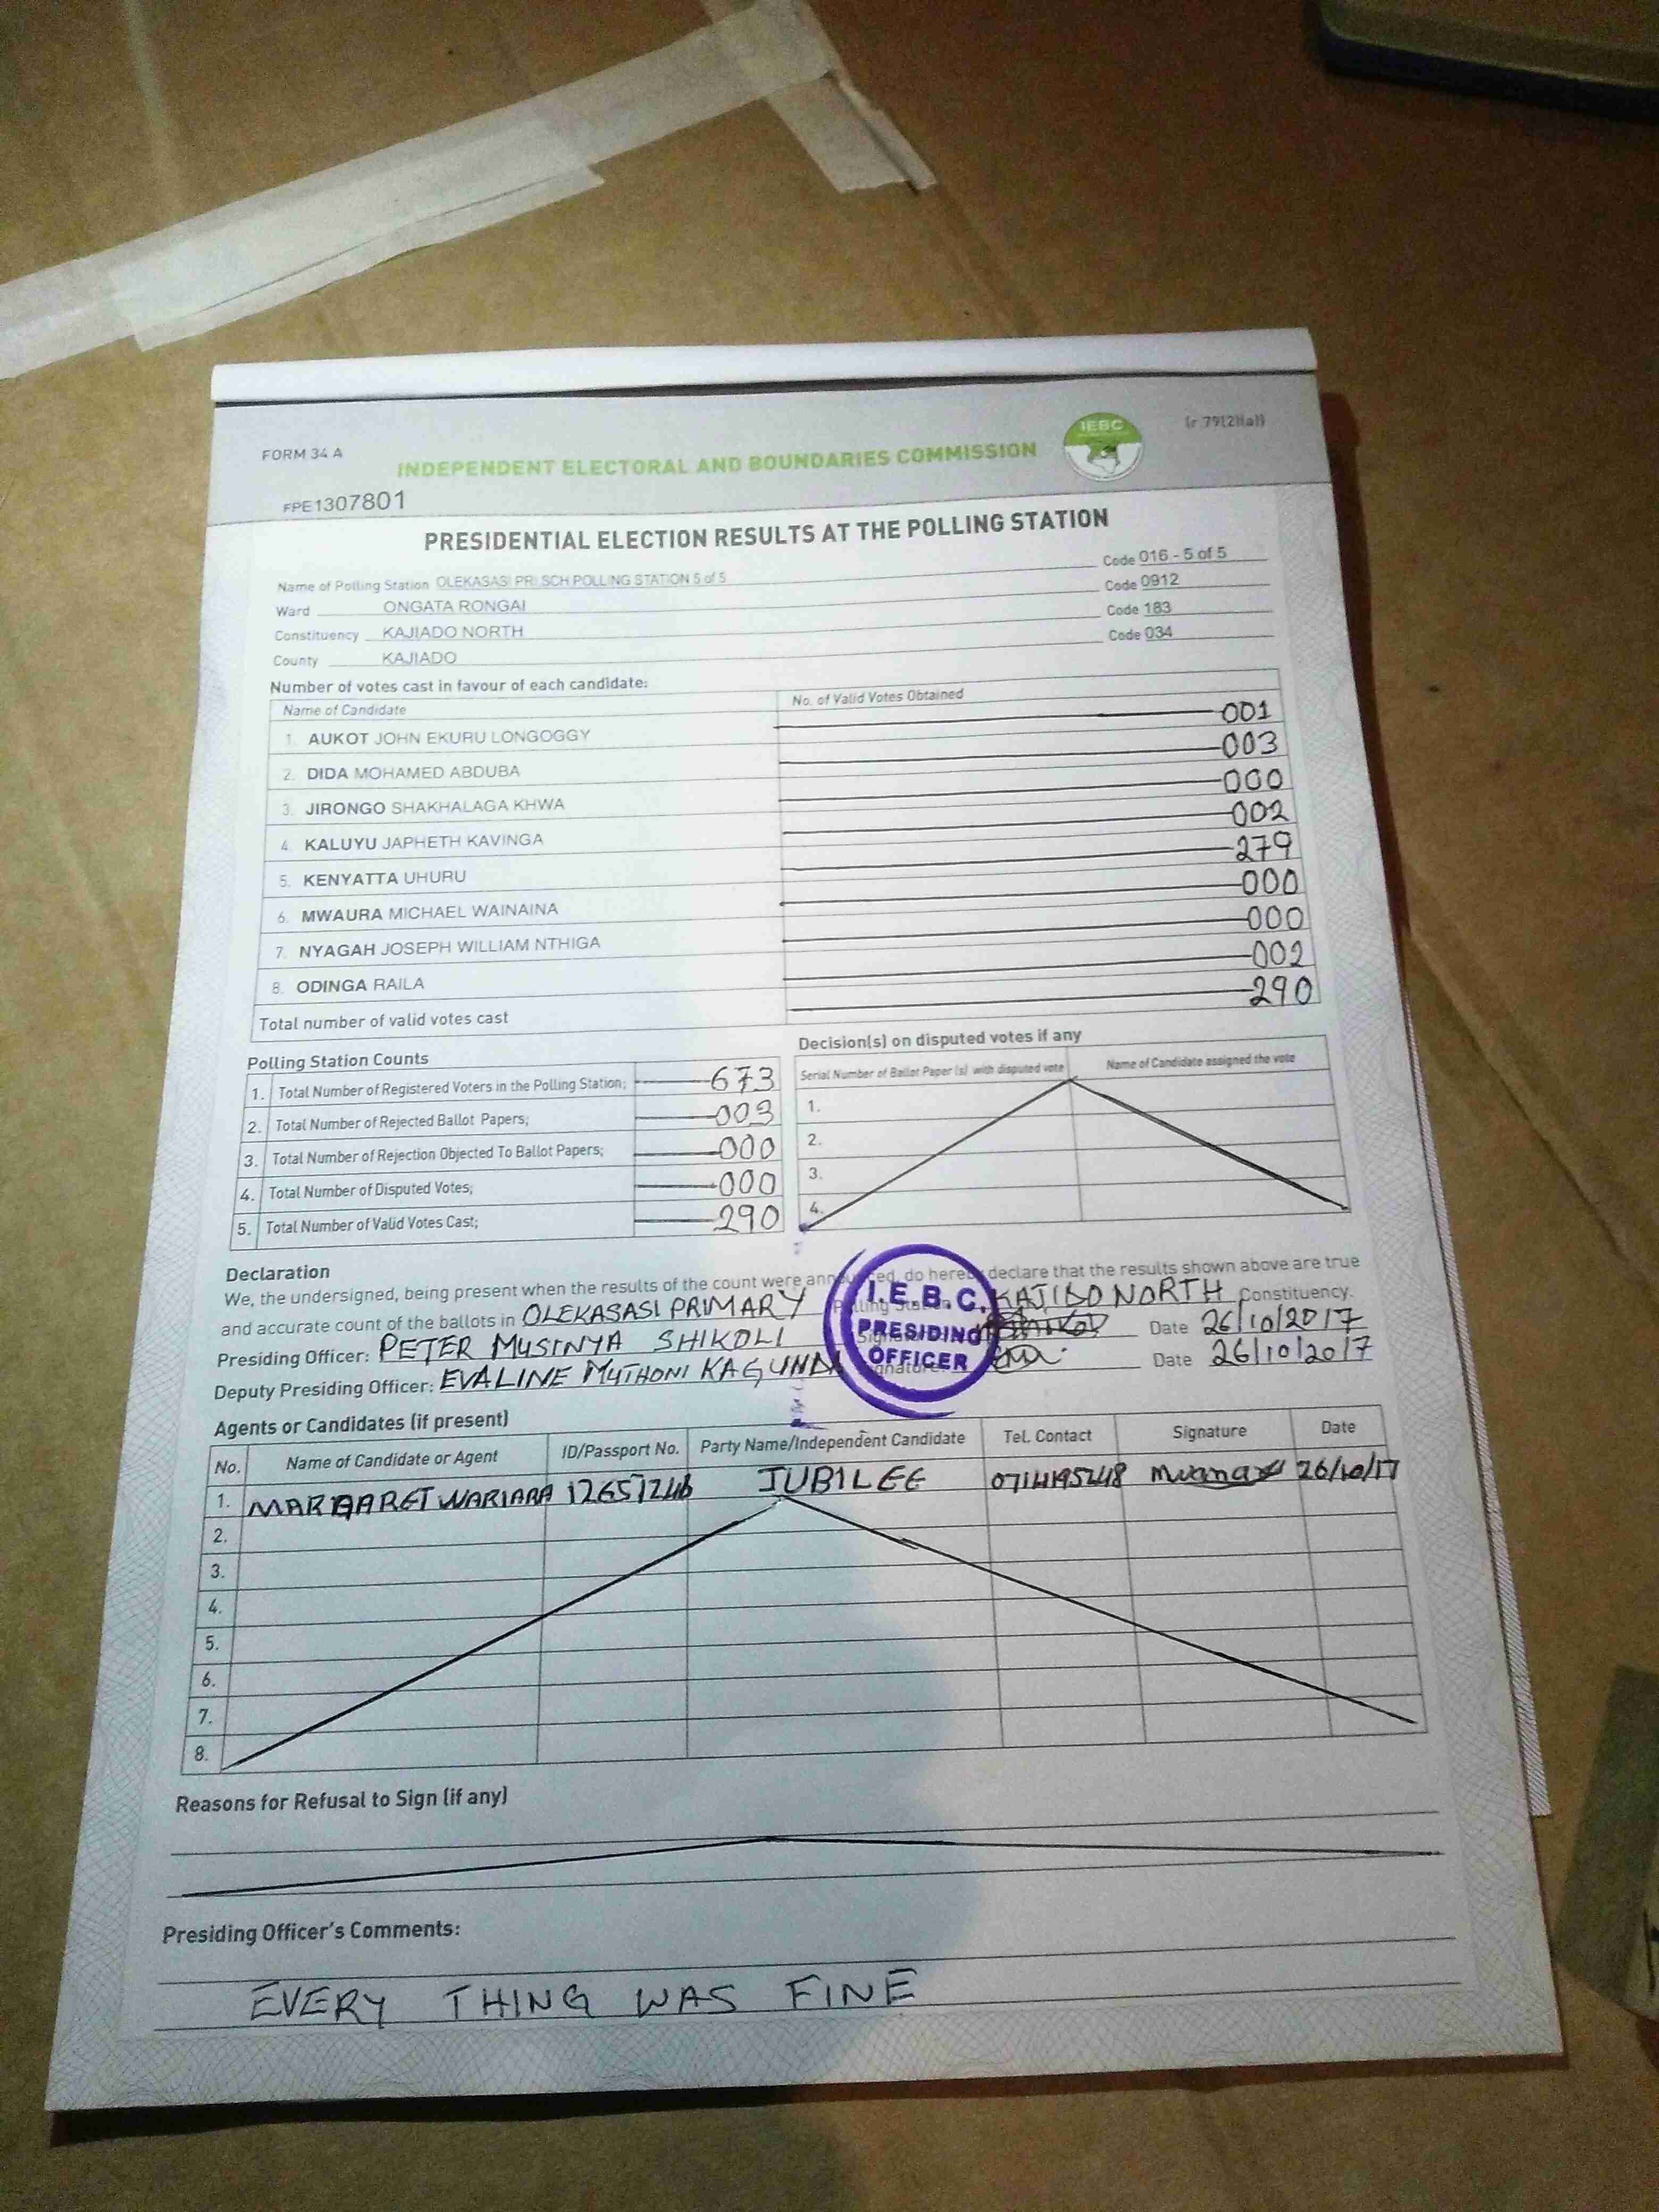 FORM 34 A
IEBC
(r.79(2)(a))
INDEPENDENT ELECTORAL AND BOUNDARIES COMMISSION
FPE1307801
PRESIDENTIAL ELECTION RESULTS AT THE POLLING STATION
Name of Polling Station OLEKASASI PRI SCH POLLING STATION 5 of 5 Code 016 - 5 of 5
Ward ONGATA RONGAI Code 0912
Constituency KAJIADO NORTH Code 183
County KAJIADO Code 034
Number of votes cast in favour of each candidate:
Name of Candidate No. of Valid Votes Obtained
1. AUKOT JOHN EKURU LONGOGGY 001
2. DIDA MOHAMED ABDUBA 003
3. JIRONGO SHAKHALAGA KHWA 000
4. KALUYU JAPHETH KAVINGA 002
5. KENYATTA UHURU 279
6. MWAURA MICHAEL WAINAINA 000
7. NYAGAH JOSEPH WILLIAM NTHIGA 000
8. ODINGA RAILA 002
Total number of valid votes cast 290
Polling Station Counts
1. Total Number of Registered Voters in the Polling Station; 673
2. Total Number of Rejected Ballot Papers; 003
3. Total Number of Rejection Objected To Ballot Papers; 000
4. Total Number of Disputed Votes; 000
5. Total Number of Valid Votes Cast; 290
Decision(s) on disputed votes if any
Serial Number of Ballot Paper (s) with disputed vote Name of Candidate assigned the vote
1.
2.
3.
4.
Declaration
We, the undersigned, being present when the results of the count were announced, do hereby declare that the results shown above are true
and accurate count of the ballots in OLEKASASI PRIMARY Polling Station KAJIDO NORTH Constituency.
Presiding Officer: PETER MUSINYA SHIKOLI Date 26/10/2017
Deputy Presiding Officer: EVALINE MUTHONI KAGUNDA Signature: Date 26/10/2017
I.E.B.C.
PRESIDING
OFFICER
Agents or Candidates (if present)
No. Name of Candidate or Agent ID/Passport No. Party Name/Independent Candidate Tel. Contact Signature Date
1. MARGARET WARIARA JUBILEE 26/10/17
2.
3.
4.
5.
6.
7.
8.
Reasons for Refusal to Sign (if any)
Presiding Officer's Comments:
EVERY THING WAS FINE